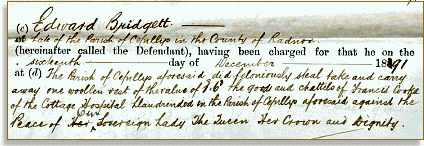 (c) Edward Bridgett.
of Late of the Parish of Cefnllys in the County of Radnor
(hereinafter called the Defendant), having been charged for that he on the
sixteenth day of December 1891
at (d) The Parish of Cefnllys aforesaid, did feloniously steal take and carry
away one woollen vest of the value of 1.6 the goods and chattels of Francis Cooke
of the Cottage Hospital Llandrindod in the Parish of Cefnllys aforesaid against the
Peace of Her Our Sovereign Lady The Queen Her Crown and Dignity.